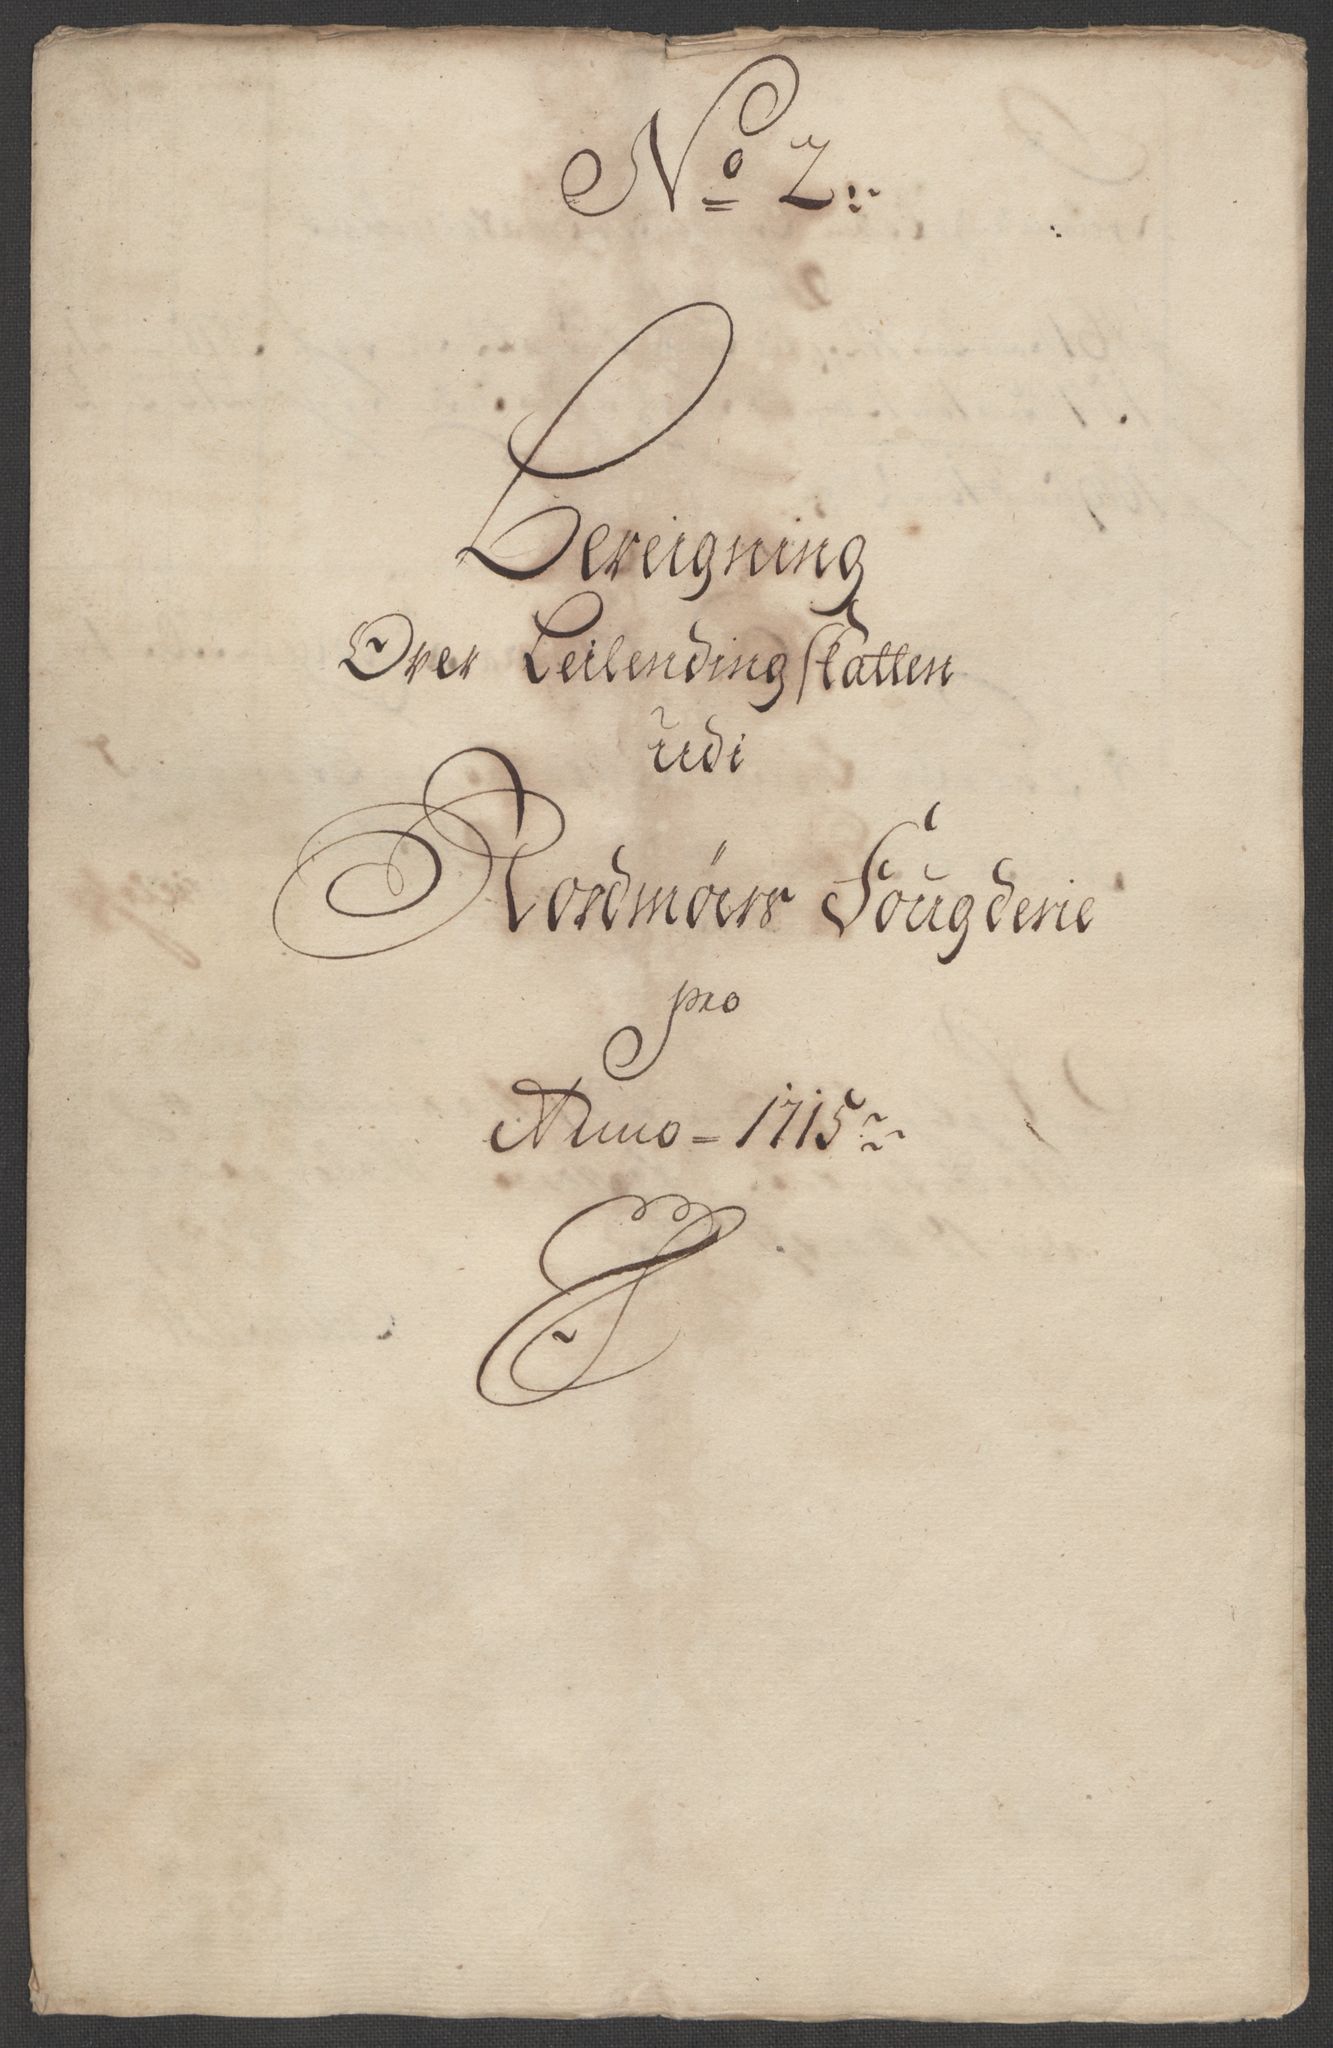 No 2.
Bereigning
Over Leilending skatten
udi
Nordmørs Fougderie
pro
Anno - 1715